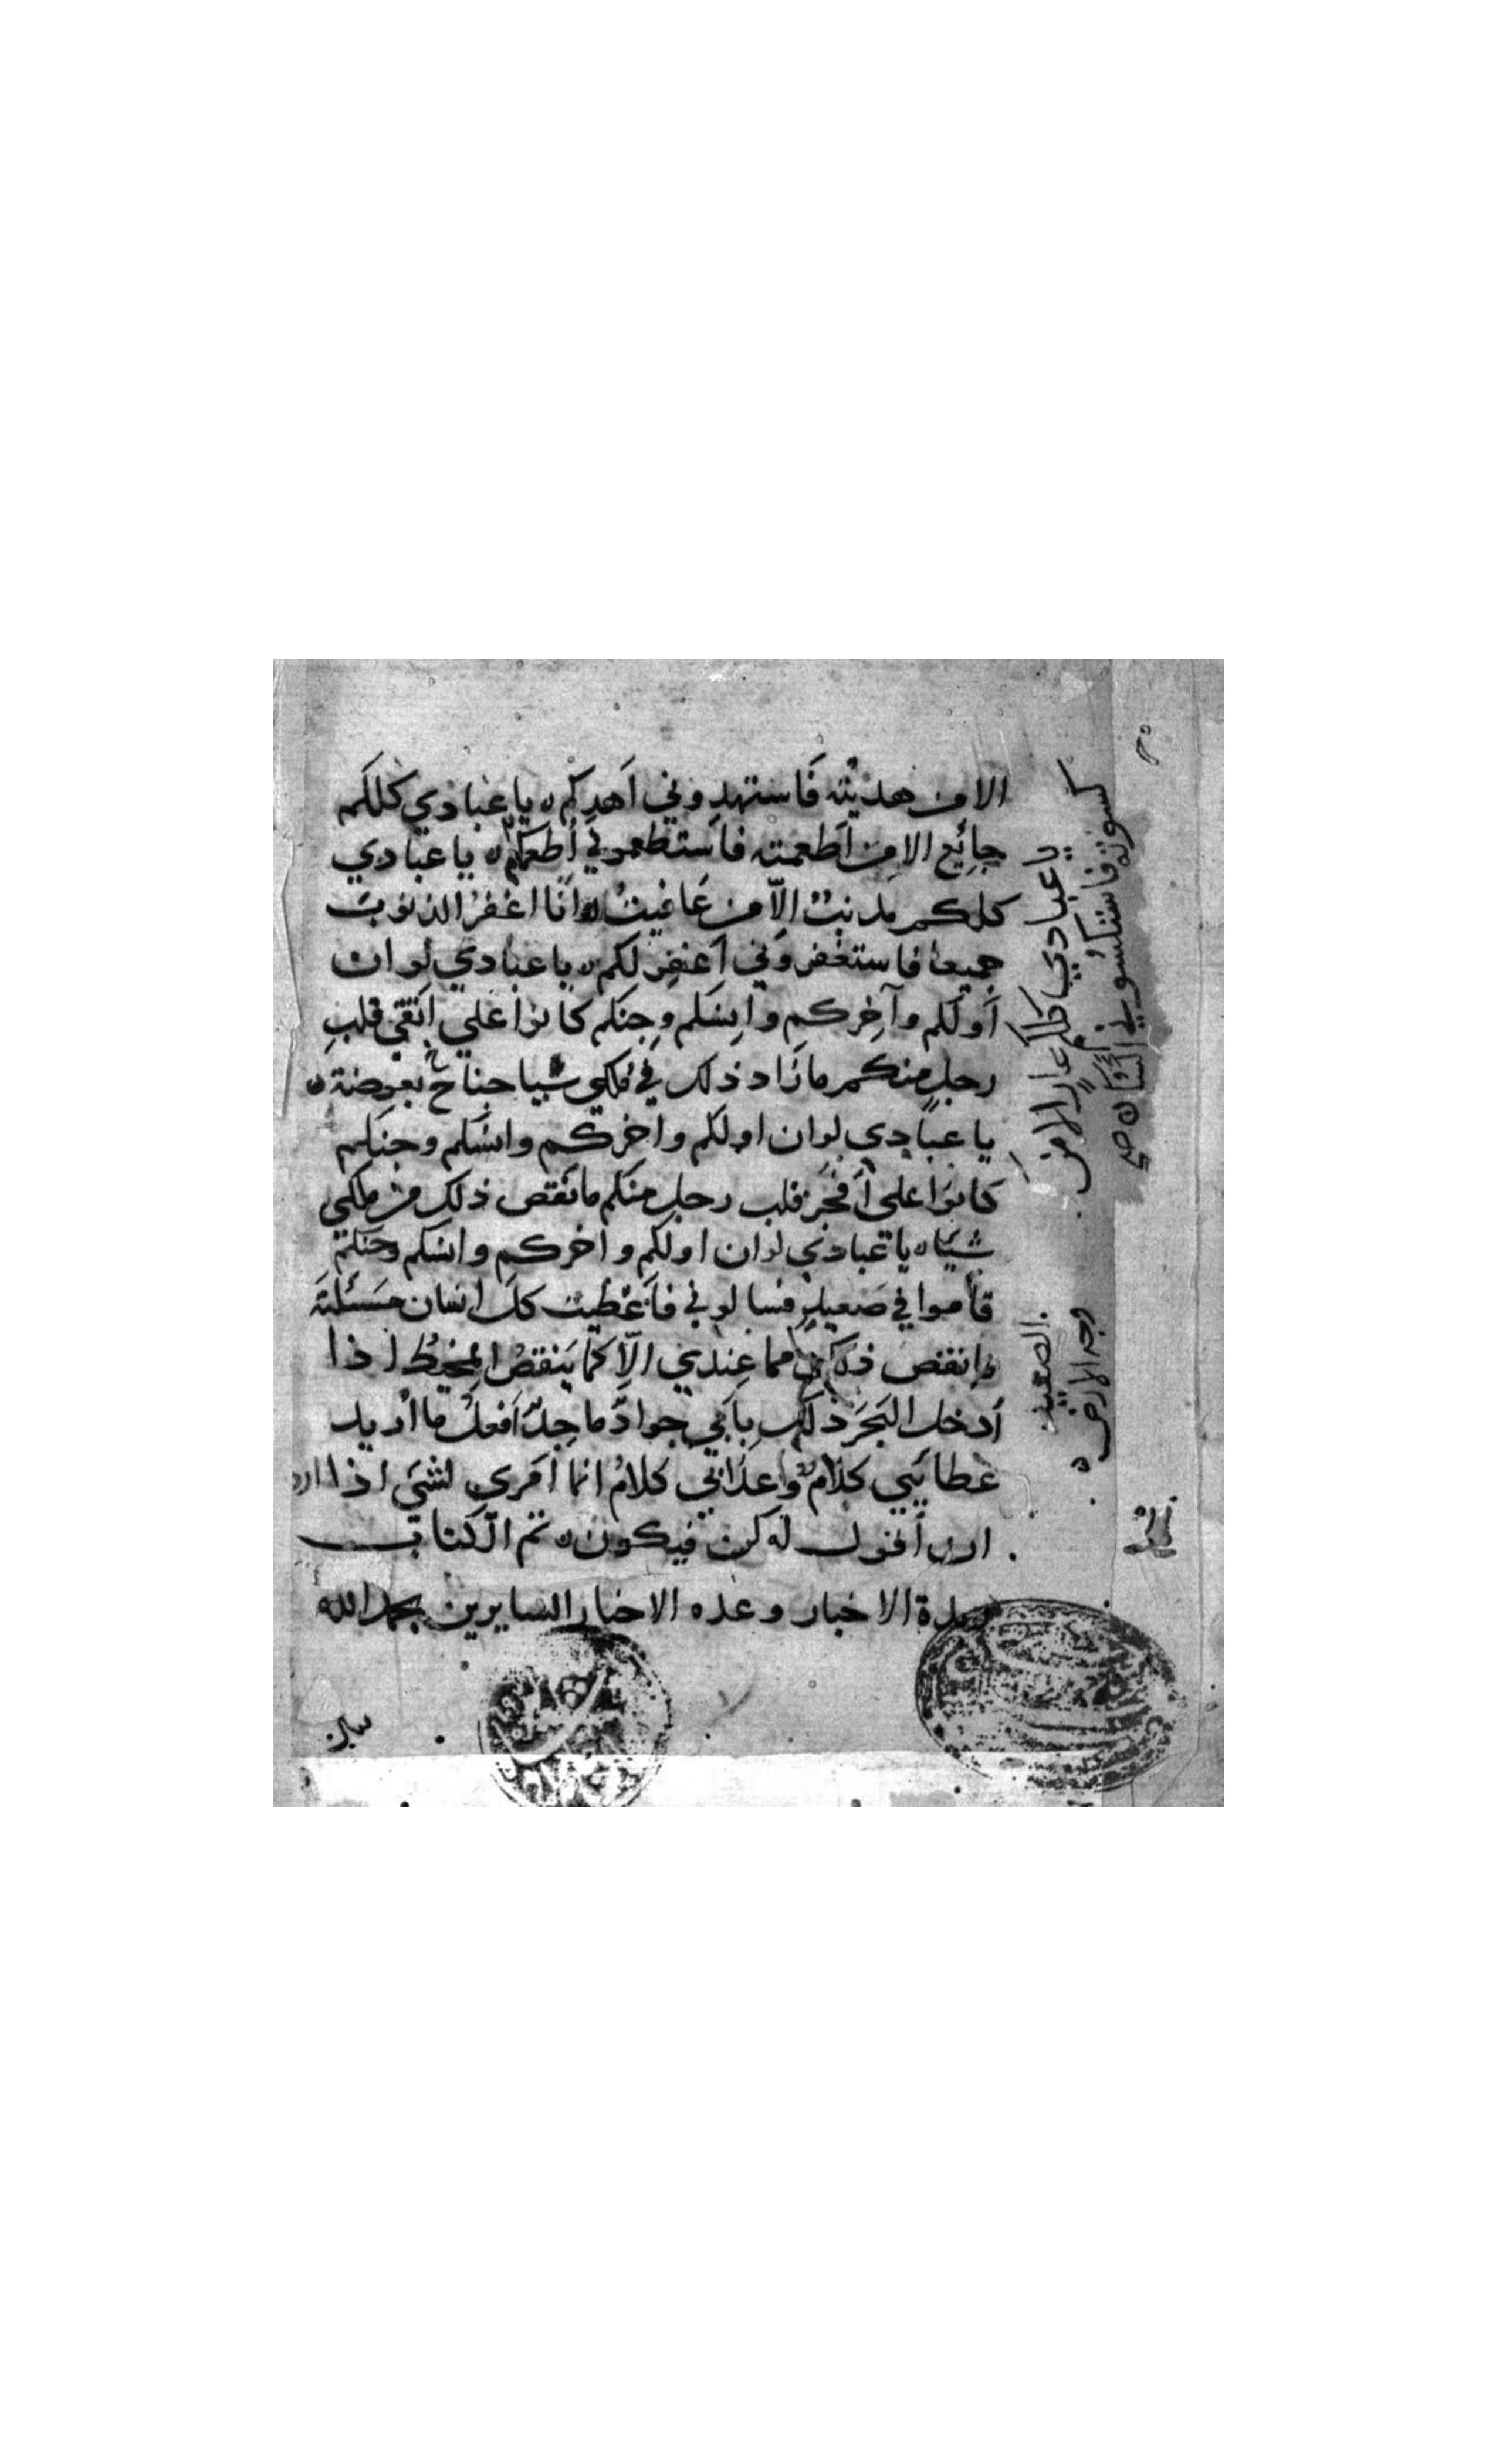 الا من هديته فَاستهدِوني اَهدِكم ه يا عبادي كلكَم
جائِع الا من اَطعمته فاَستطعموني اُطعمكم ه يا عبادي
كلكم مذنبٌ الاّ من عَافيتُ وانَا اغفرُ الذنوبَ
جميعا فاستغفروني اَغفِر لكم ه يا عبادي لو ان
اَولَكم وآخِركم وانِسَكم وجنكم كانوا على اتقى قلبِ
رجلٍ منكم ما زاد ذلك في ملكي شيا جناحَ بعوضة ه
يا عبادي لو ان اولكم واخركم وانسَكم وجنَكم
كانوَا على اَفجَرِ قلب رجلٍ منكم ما نقَص ذلكِ من ملكي
شيَئا ه يا عبادي لو ان اولكم واخركم وانسكم وجنكم
قاَموا في صَعيدٍ فسالوني فاَعَطيت كلَ انسان مسَئلتَه
ما نقصَ ذلك مما عِندي الاّ كما يَنقصُ المِخيَطُ اذا
اُدخل البَحرَ ذلكَ بِاَني جوادٌ ماجِدٌ اَفعلُ ما اُريد
عَطائِي كلامٌ وعذَابي كلامٌ انما اَمري لشيَ اذا ارد
ان اَقول له كن فيكون ه تم الكتاب
الاخبار وعده الاخبار السايرين بحمد الله
يا عبادي كلكم عارٍ الا من
كسوته فاستكسوني
الصعيد
وجه الارض ه